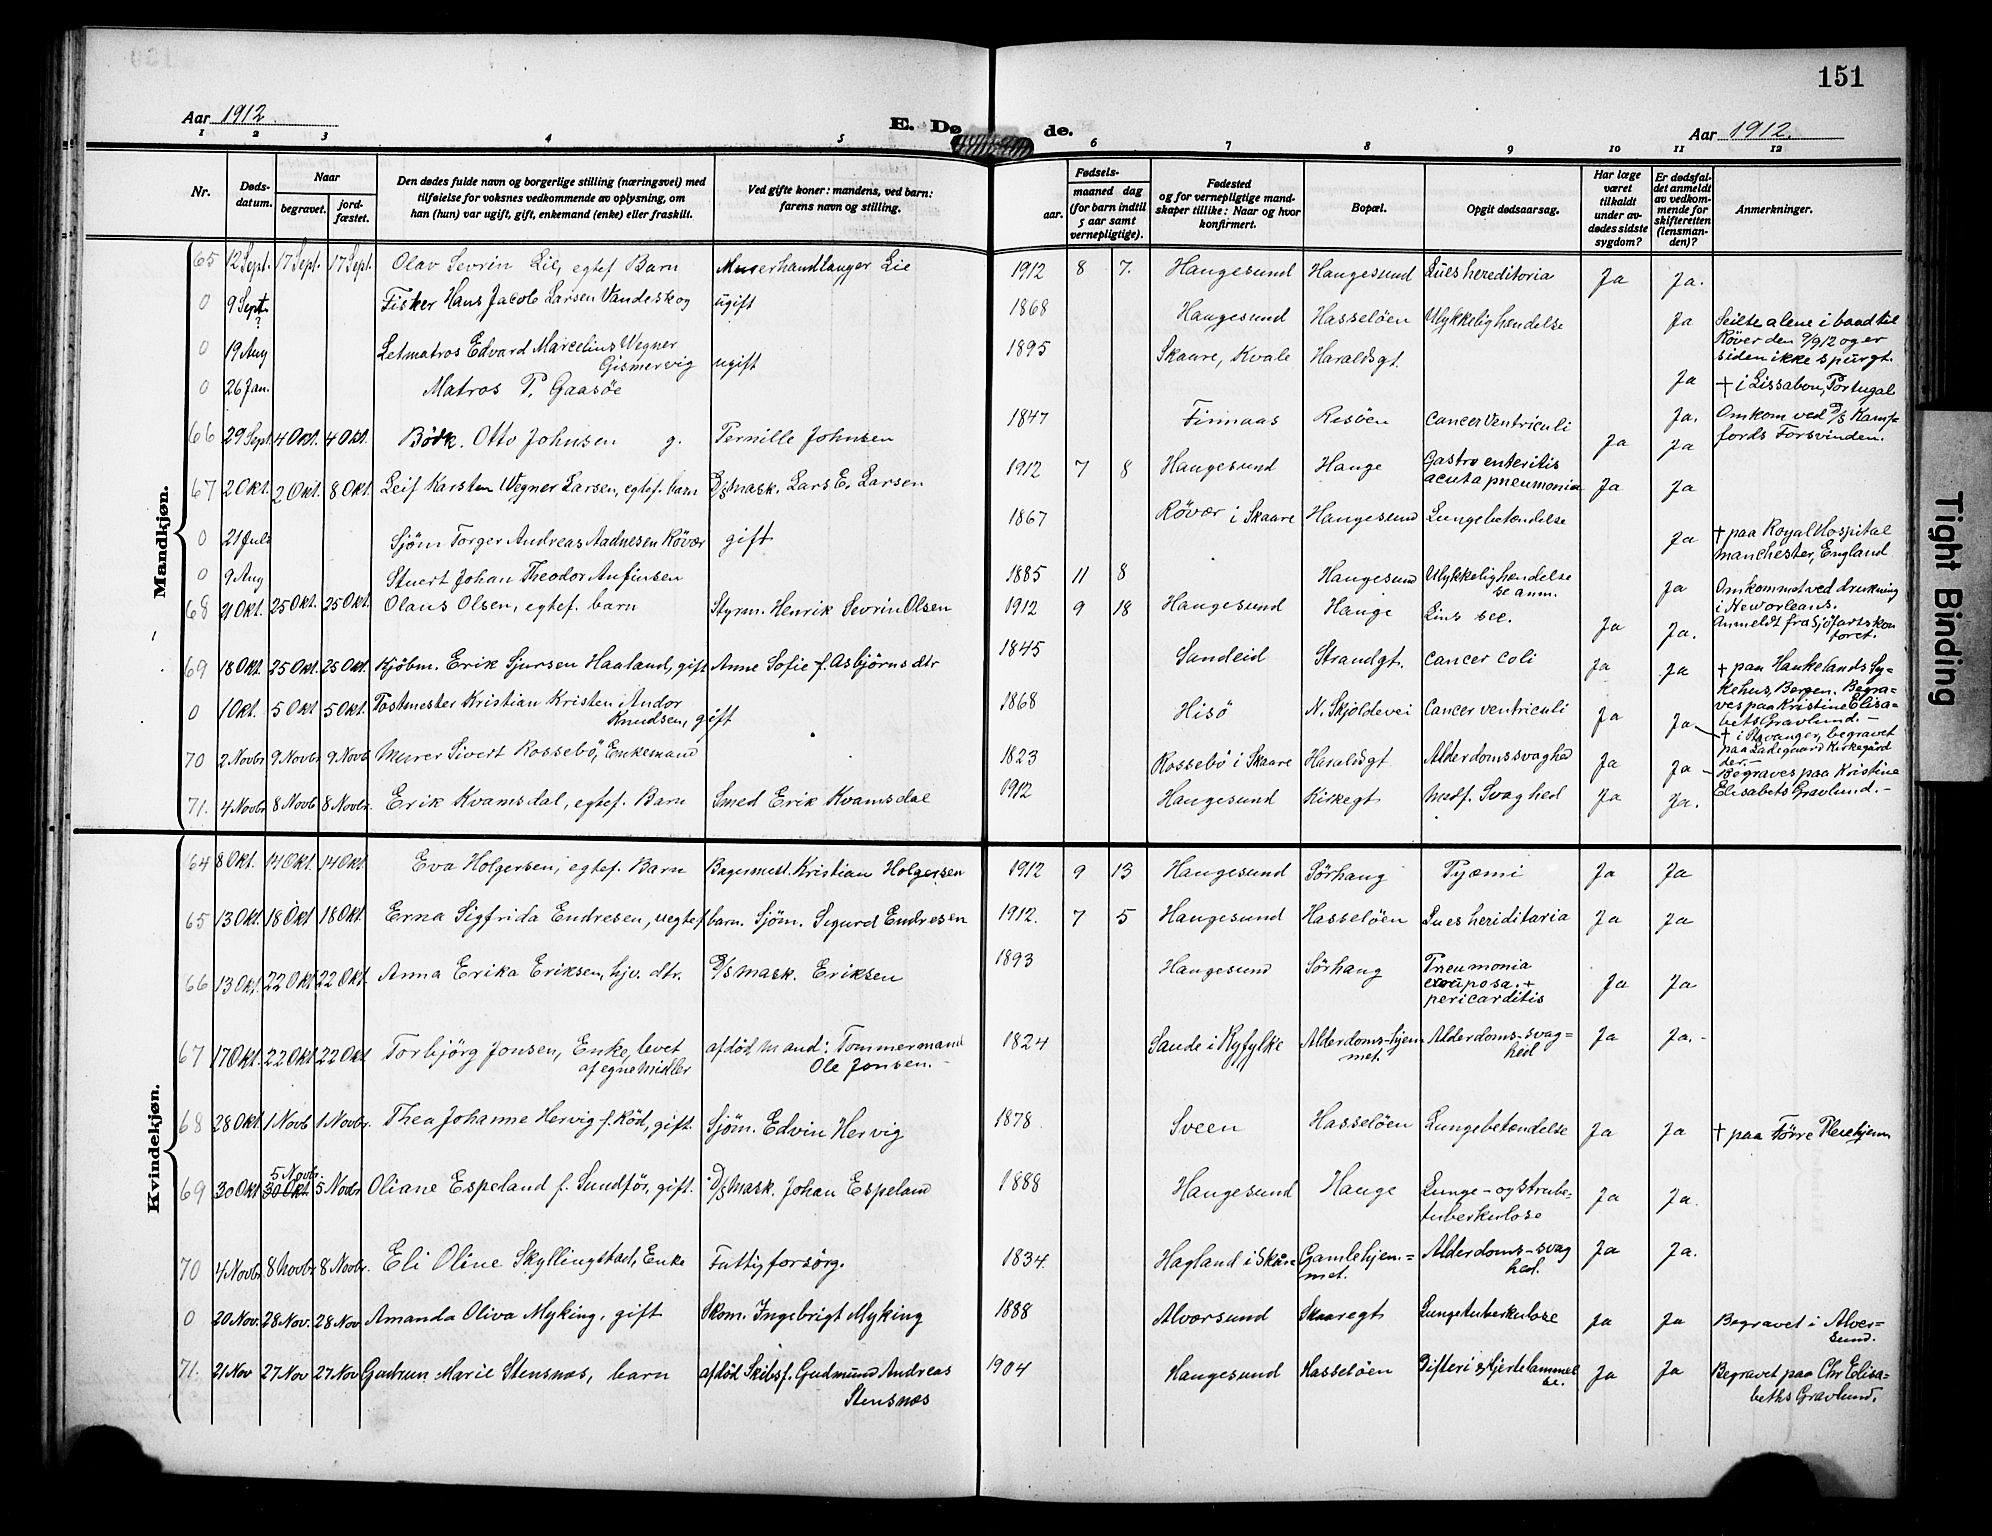 151
Aar 1912
E. Dø de.
Aar 1912.
1 2 3 4 5 6 7 8 9 10 11 12
Nr.
Døds-
datum.
Naar
begravet.
jord-
fæstet.
Den dødes fulde navn og borgerlige stilling (næringsvei) med
tilføielse for voksnes vedkommende av oplysning, om
han (hun) var ugift, gift, enkemand (enke) eller fraskilt.
Ved gifte koner: mandens, ved barn:
farens navn og stilling.
Fødsels-
aar.
maaned dag
(for barn indtil
5 aar samt
vernepligtige).
Fødested
og for vernepligtige mand-
skaper tillike: Naar og hvor
konfirmert.
Bopæl.
Opgit dødsaarsag.
Har læge
været
tilkaldt
under av-
dødes sidste
sygdom?
Er dødsfal-
det anmeldt
av vedkom-
mende for
skifteretten
(lensman-
den)?
Anmerkninger.
Mandkjøn.
65 12 Sept. 17 Sept. 17 Sept. Olav Sevrin Lie, egtef Barn Murerhandlanger Lie 1912 8 7. Haugesund Haugesund Lues hereditoria Ja Ja.
0 9 Sept. ? Fisker Hans Jacob Larsen Vandeskog ugift 1868 Haugesund Hasseløen Ulykkelig hændelse Ja Seilte alene i baad til
Røver den 9/9 12 og er
siden ikke spurgt.
0 19 Aug Letmatros Edvard Marcelius Wegner
Gismervig ugift 1895 Skaare, Kvale Haraldsgt. Ja + i Lissabon, Portugal
0 26 Jan. Matros P. Gaasøe Ja. Omkom ved D/S Kams-
fords Forsvinden.
66 29 Sept 4 Okt. 4 Okt. Bødk. Otto Johnsen g. Pernille Johnsen 1847 Finnaas Risøen Cancer Ventriculi Ja Ja
67 2 Okt. 2 Okt. 8 Okt. Leif Karsten Wegner Larsen, egtef. barn D/S mask. Lars E. Larsen 1912 7 8 Haugesund Hauge Gastro enteritis
acuta pneumonia Ja Ja
0 21 Juli Sjøm Torger Andreas Aadnesen Røvær gift 1867 Røvær i Skaare Haugesund Lungebetændelse Ja + paa Royal Hospital
Manchester, England
0 9 Aug Stuert Johan Theodor Anfinsen 1885 11 8 Haugesund Ulykkelig hændelse
se anm. Ja Omkommet ved drukning
i Neworleans.
Anmeldt fra Sjøfartskon
toret.
68 21 Okt. 25 Okt. 25 Okt. Olaus Olsen, egtef. barn Styrm. Henrik Sevrin Olsen 1912 9 18 Haugesund Hauge Ja Ja.
69 18 Okt. 25 Okt. 25 Okt. Kjøbm. Erik Sjursen Haaland, gift Anne Sofie f. Asbjørnsdtr 1845 Sandeid Strandgt. Cancer coli Ja Ja + paa Haukelands Sy-
kehus, Bergen. Begra-
ves paa Kristine Elisa-
bets Gravlund. -
0 1 Okt. 5 Okt 5 Okt. Postmester Kristian Kristen Andor
Knudsen, gift 1868 Hisø N. Skjoldevei Cancer ventriculi Ja Ja + i Stavanger, begravet
paa Ladegaard Kirkegård
der. -
70 2 Novbr 9 Novbr 9 Novb Murer Sivert Rossebø, Enkemand 1823 Rossebø i Skaare Haraldsgt Alderdomssvaghed Ja Ja - Begraves paa Kristine
Elisabets Gravlund. -
71. 4 Novbr 8 Novb 8 Novbr. Erik Kvamsdal, egtef. Barn Smed Erik Kvamsdal 1912 Haugesund Kirkegt Medf. Svaghed Ja Ja.
Kvindekjøn.
64 8 Okt. 14 Okt. 14 Okt Eva Holgersen, egtef. Barn Bagermest. Kristian Holgersen 1912 9 13 Haugesund Sørhaug Pyæmi Ja Ja
65 13 Okt. 18 Okt 18 Okt Erna Sigfrida Endresen, uegtef barn. Sjøm. Sigurd Endresen 1912. 7 5 Haugesund Hasseløen Lues heriditaria Ja Ja
66 13 Okt. 22 Okt 22 Okt. Anna Erika Eriksen, hjv. dtr. D/S mask. Eriksen 1893 Haugesund Sørhaug Pneumonia
crouposa. +
pericarditis Ja Ja
67 17 Okt. 22 Okt 22 Okt Torbjørg Jonsen, Enke, levet
af egne Midler afdød mand: Tømmermand
Ole Jonsen. - 1824 Sande i Ryfylke Alderdoms-hjem-
met. Alderdoms-svag=
hed Ja Ja. -
68 28 Okt 1 Novb 1 Novbr. Thea Johanne Hervig f. Rød, gift. Sjøm. Edvin Hervig 1878 Sveen Hasseløen Lungebetændelse Ja Ja + paa Førre Pleiehjem
69 30 Okt 5 Novbr. 30 Okt. 5 Novbr Oliane Espeland f. Sundfør, gift. D/S mask. Johan Espeland 1888 Haugesund Hauge Lunge-og strube-
tuberkulose Ja Ja.
70 4 Novbr 8 Novbr 8 Novbr. Eli Oline Skyllingstad, Enke Fattigforsørg. 1834. Hagland i Skåre Gamlehjem=
met. Alderdoms-svag
hed. Ja Ja.
0 20 Nov. 28 Nov. 28 Nov Amanda Oliva Myking, gift Skom. Ingebrigt Myking 1888 Alversund Skaaregt Lungetuberkulose Ja Ja Begravet i Alver-
sund.
71. 21 Nov 27 Nov 27 Nov Gudrun Marie Stensnæs, barn afdød Skibsf. Gudmund Andreas
Stensnæs 1904 Haugesund Hasseløen Difteri & Hjertelammel
se. Ja Ja Begravet paa Chr Elisa-
beths Gravlund.
Tight Binding